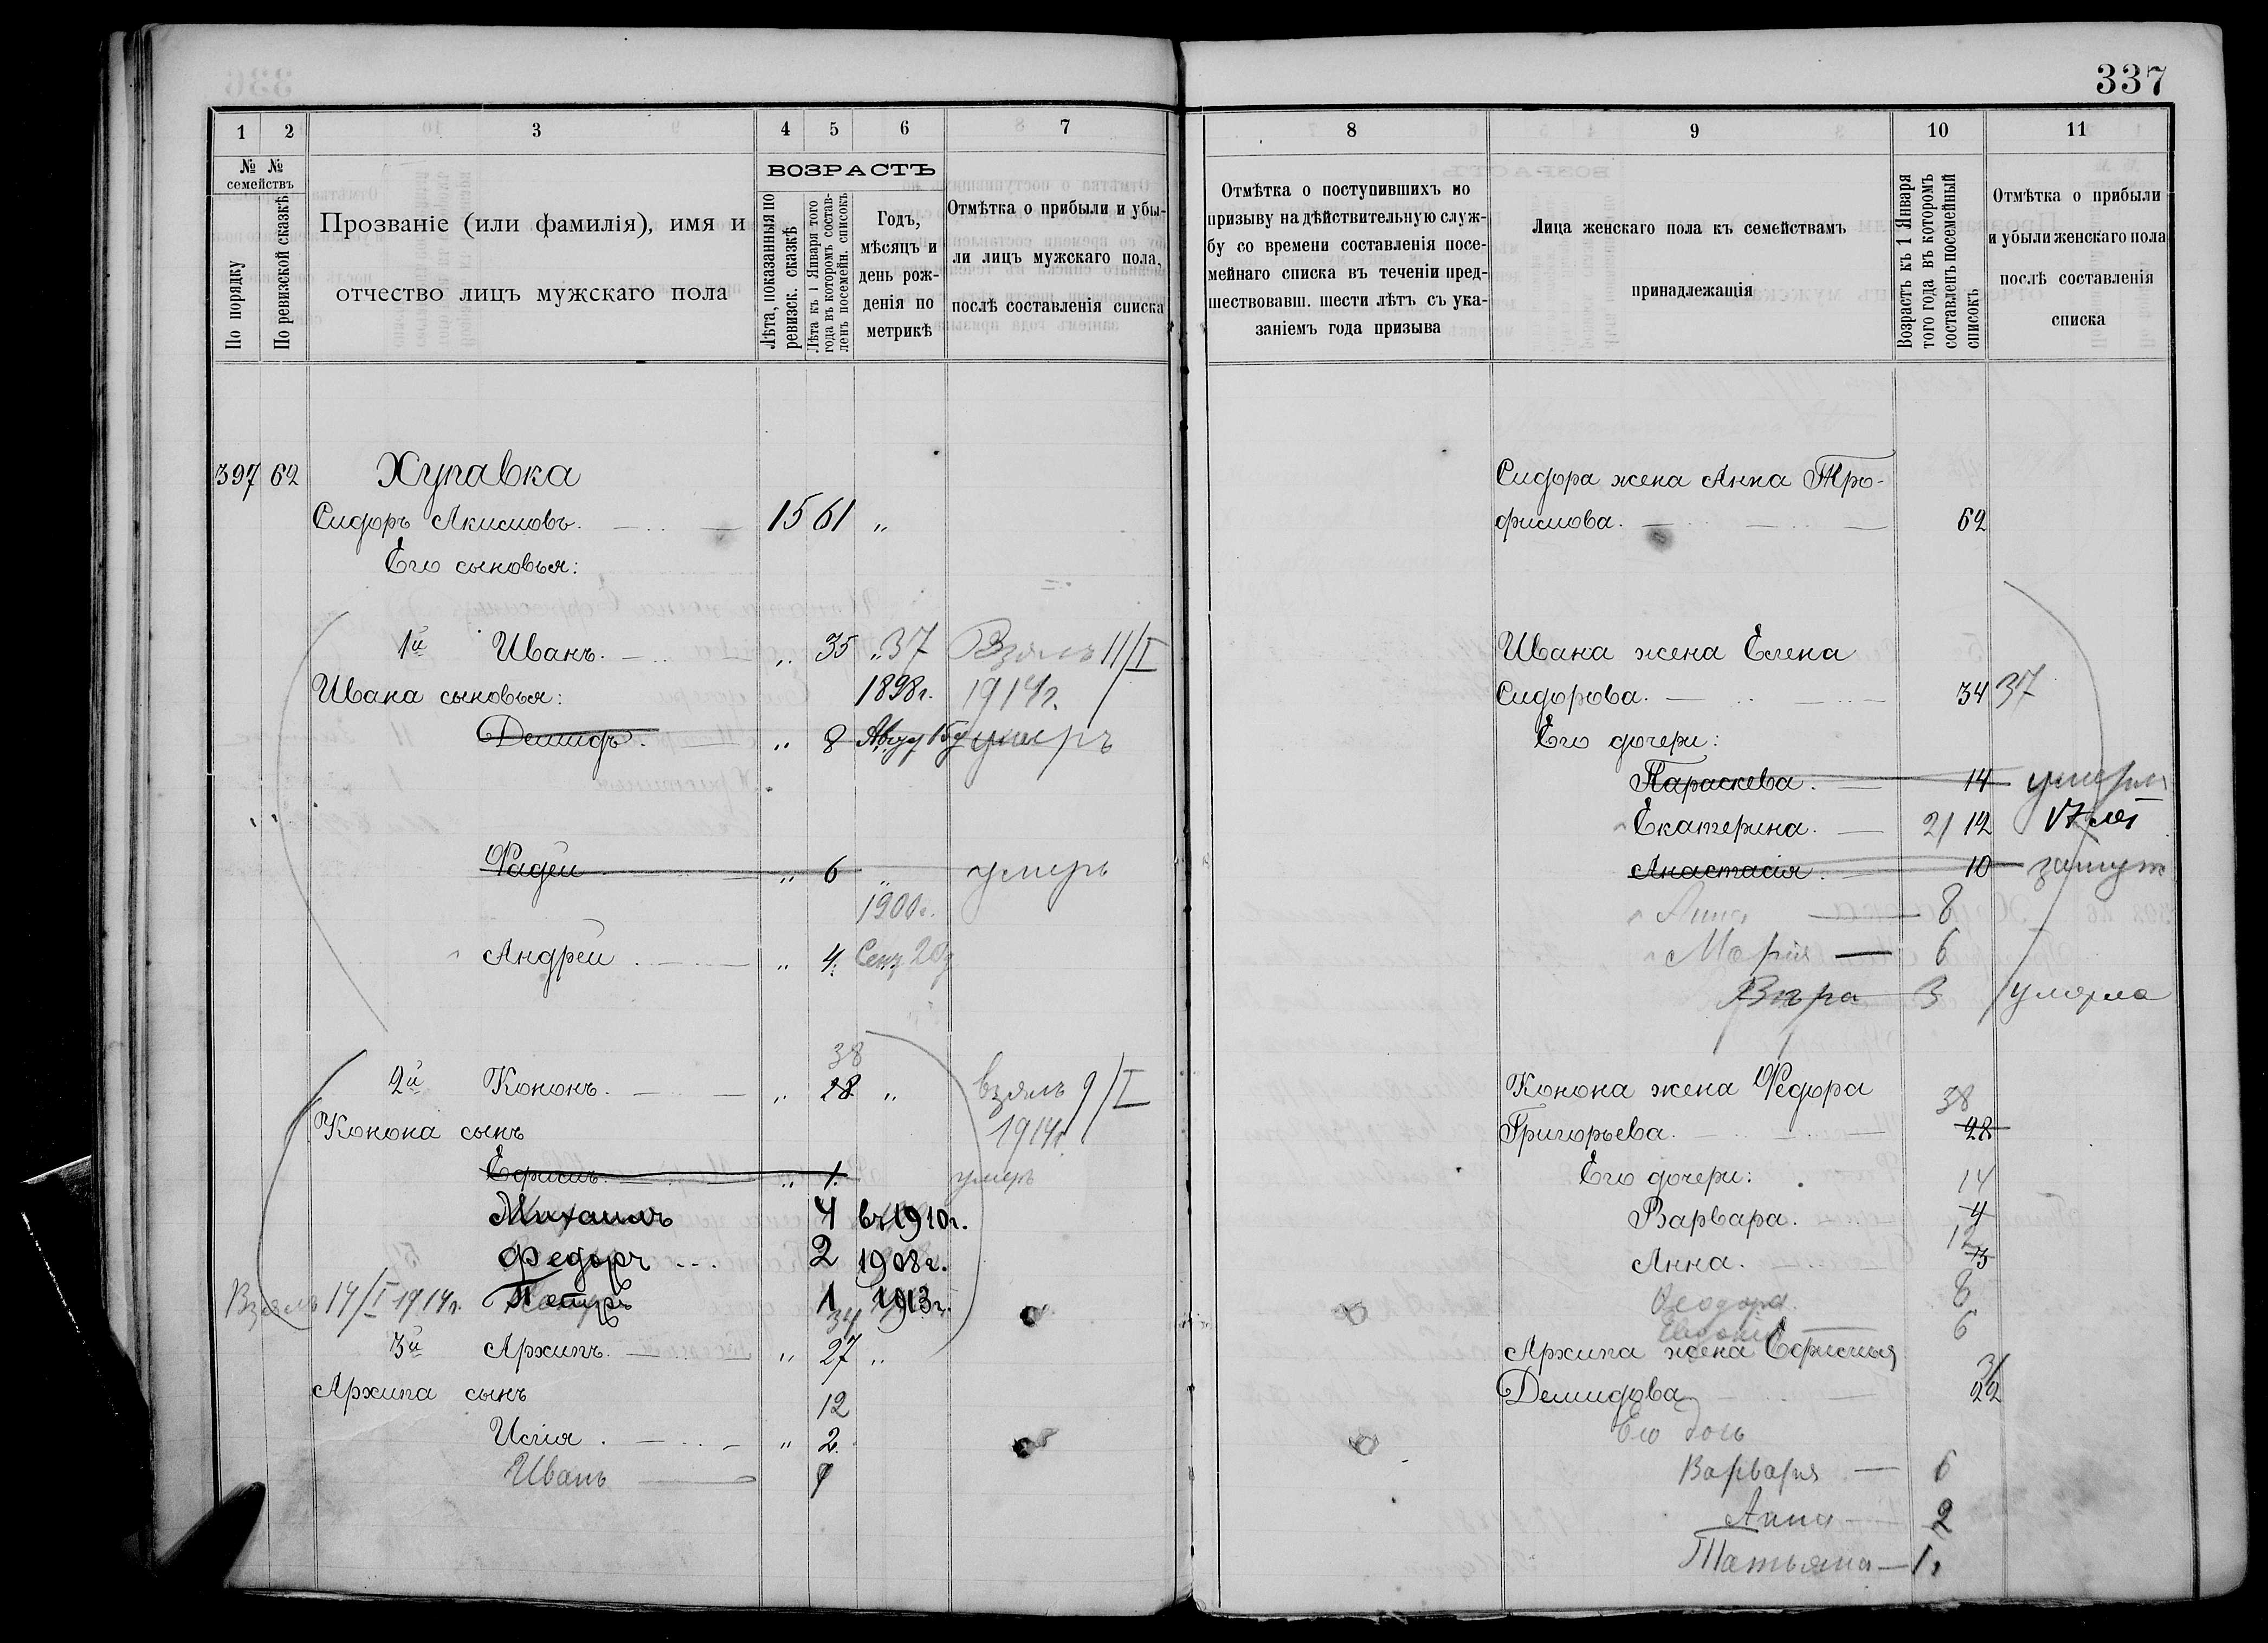 337
1 2 3 4 5 6 7
№ № семействъ
По порядку
По ревизской сказкѣ
Прозваніе (или фамилія), имя и
отчество лицъ мужскаго пола
ВОЗРАСТЪ
Лѣта, показанныя по
ревизск. сказкѣ
Лѣта къ 1 Января того
года въ которомъ состав-
ленъ посемейн. списокъ
Годъ,
мѣсяцъ и
день рож-
денія по
метрикѣ
Отмѣтка о прибыли и убы-
ли лицъ мужскаго пола,
послѣ составленія списка
397 62 Хупавка
Сидоръ Акимовъ. 15 61 „
Его сыновья:
1й Иванъ. „ 35 „ 37 Взялъ 11/I
Ивана сыновья: 1898г. 1914г.
Демидъ. „ 8 Авгус 15д умеръ
Фадей „ 6 „ умеръ
1900г.
Андрей „ 4. Сент 20д
38
2й Кононъ. „ 28 „ взялъ 9/I
Конона сынъ 1914г.
Ефимъ. „ 1. умеръ
Михаилъ 4 въ 1910г.
Федоръ 2 1908г.
Взялъ 14/I 1914г. Петръ 1 1913г.
34
3й Архипъ. „ 27 „
Архипа сынъ 12
Исаія. „ 2.
Иванъ
8 9 10 11
Отмѣтка о поступившихъ по
призыву на дѣйствительную служ-
бу со времени составленія посе-
мейнаго списка въ теченіи пред-
шествовавш. шести лѣтъ съ ука-
заніемъ года призыва
Лица женскаго пола къ семействамъ
принадлежащія
Возрастъ къ 1 Января
того года въ которомъ
составленъ посемейный
списокъ
Отмѣтка о прибыли
и убыли женскаго пола
послѣ составленія
списка
Сидора жена Анна Тро-
фимова. 62
Ивана жена Елена
Сидорова. 34 37
Его дочери:
Параскева. 14 умерла
Екатерина. 21 12
Анастасія. 10 замуж
Анна 8
Марія 6
Вѣра 3 умерла
Конона жена Федора 38
Григорьева. 28
Его дочери: 14
Варвара. 4
12
Анна. 3
Феодора. 8
Евдокія 6
Архипа жена Ефимія 31
Демидова 22
Его дочь
Варвара 6
Анна 2
Татьяна 1.